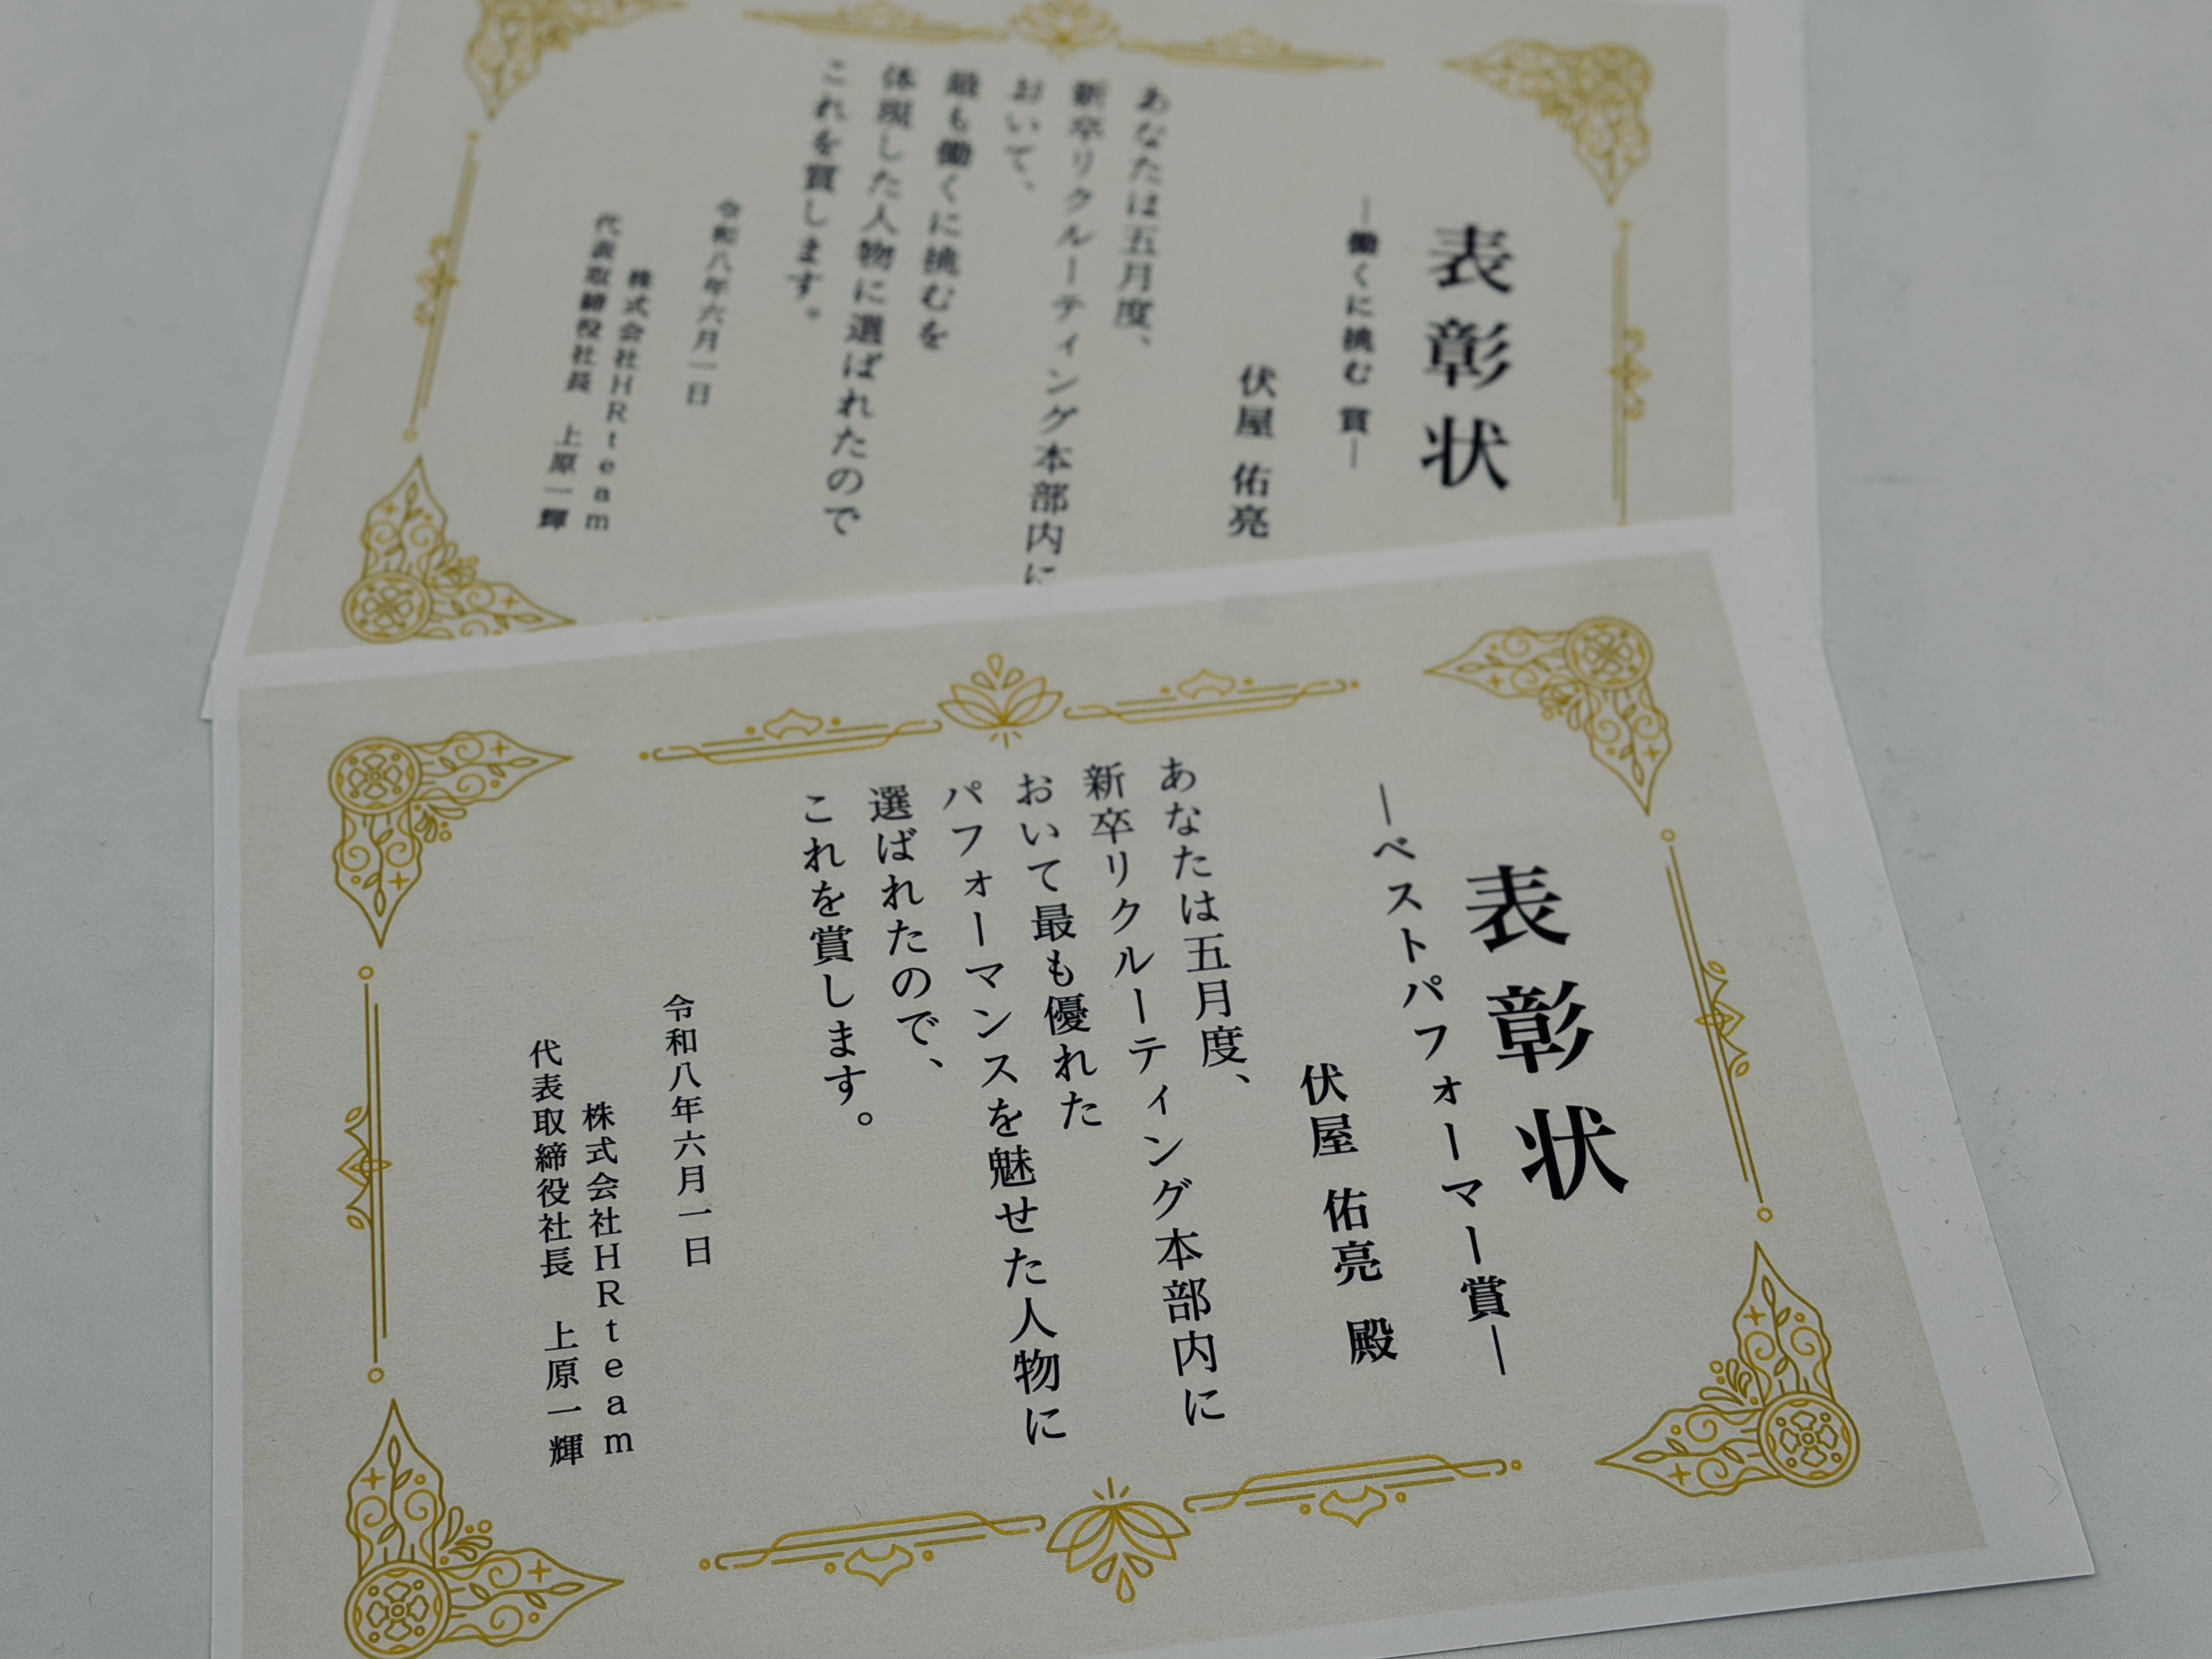 表彰状
―働くに挑む 賞―
伏屋 佑亮
あなたは五月度、
新卒リクルーティング本部内に
おいて、
最も働くに挑むを
体現した人物に選ばれたので
これを賞します。
令和八年六月一日
株式会社HRteam
代表取締役社長 上原一輝
表彰状
―ベストパフォーマー賞―
伏屋 佑亮 殿
あなたは五月度、
新卒リクルーティング本部内に
おいて最も優れた
パフォーマンスを魅せた人物に
選ばれたので、
これを賞します。
令和八年六月一日
株式会社HRteam
代表取締役社長 上原一輝